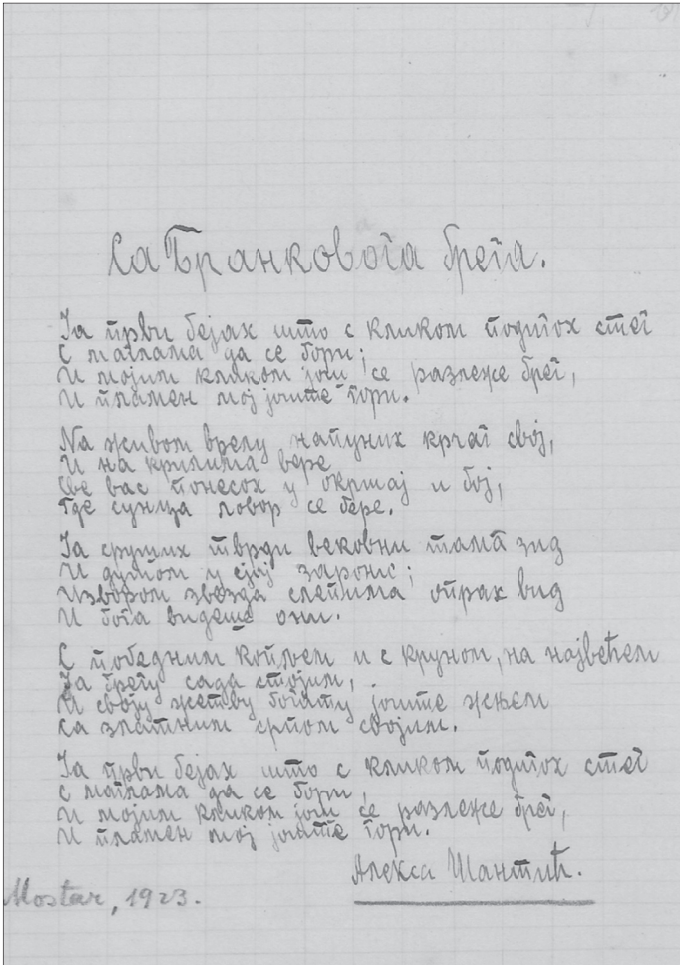 Са Бранковога брега.
Ја први бејах што с кликом подигох стег
С маглама да се бори;
И мојим кликом још се разлеже брег,
И пламен мој јоште гори.
На живом врелу напуних крчаг свој,
И на крилима вере
Све вас понесох у окршај и бој,
Где сунца ловор се бере.
Ја сруших тврди вековни тама зид
И духом у сјај зароних;
Извором звезда слепима опрах вид
И бога видеше они.
С победним копљем и с круном, на највећем
Ја брегу сада стојим,
И своју жетву богату јоште жњем
Са златним српом својим.
Ја први бејах што с кликом подигох стег
С маглама да се бори,
И мојим кликом још се разлеже брег,
И пламен мој јоште гори.
Алекса Шантић.
Mostar, 1923.